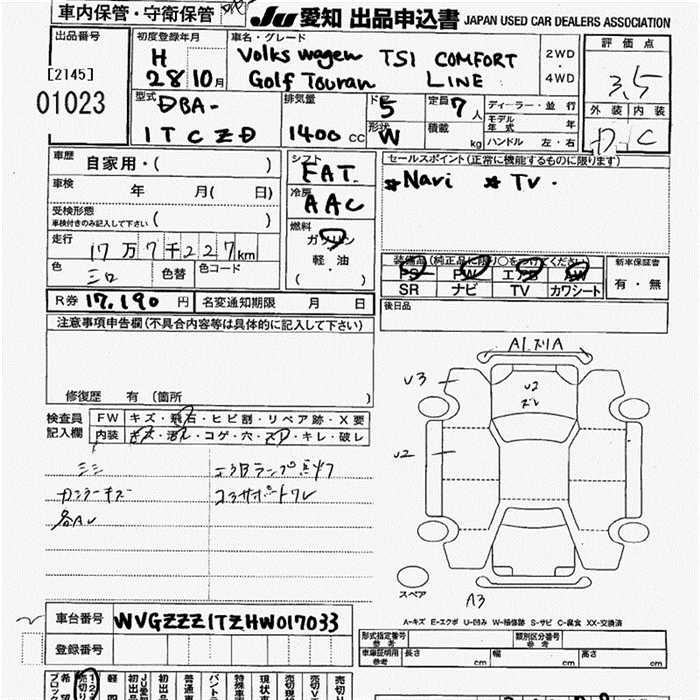 車内保管・守衛保管
JU 愛知 出品申込書 JAPAN USED CAR DEALERS ASSOCIATION
出品番号
[2145]
01023
初度登録年月
H
28 10月
車名・グレード
Volkswagen TSI COMFORT
Golf Touran LINE
2WD
・
4WD
評価点
3.5
外装 内装
D C
型式
DBA-
1TCZD
排気量
1400 cc
ドア
5
形状
W
定員 7人
積載 kg
ディーラー・並行
モデル年式 年
ハンドル 左・右
車歴 自家用・( )
車検 年 月( 日)
受検形態
車検付きのみ記入して下さい ( )
走行 17万7千227km
色 色替 色コード
シフト
FAT
冷房
AAC
燃料
ガソリン
軽・油
( )
セールスポイント(正常に機能するものに限ります)
*Navi *TV.
装備品(純正品に限り○をつけてください)
PS PW エアB AW
SR ナビ TV カワシート
新車保証書
有・無
R券 17,190 円 名変通知期限 月 日
後日品
注意事項申告欄(不具合内容等は具体的に記入して下さい)
修復歴 有 (箇所 )
検査員記入欄
FW キズ・飛石・ヒビ割・リペア跡・X要
内装 キズ・汚れ・コゲ・穴・スレ・キレ・破レ
エアBランプ点灯
コアサポートワレ
各AU
A1 ズリA
U3
U2
ズレ
U2
A3
スペア
A-キズ E-エクボ U-凹み W-補修跡 S-サビ C-腐食 XX-交換済
車台番号 WVGZZZ1TZHW017033
登録番号
形式指定番号 参考
類別区分番号 参考
車庫証明用 参考 長さ cm 幅 cm 高さ cm